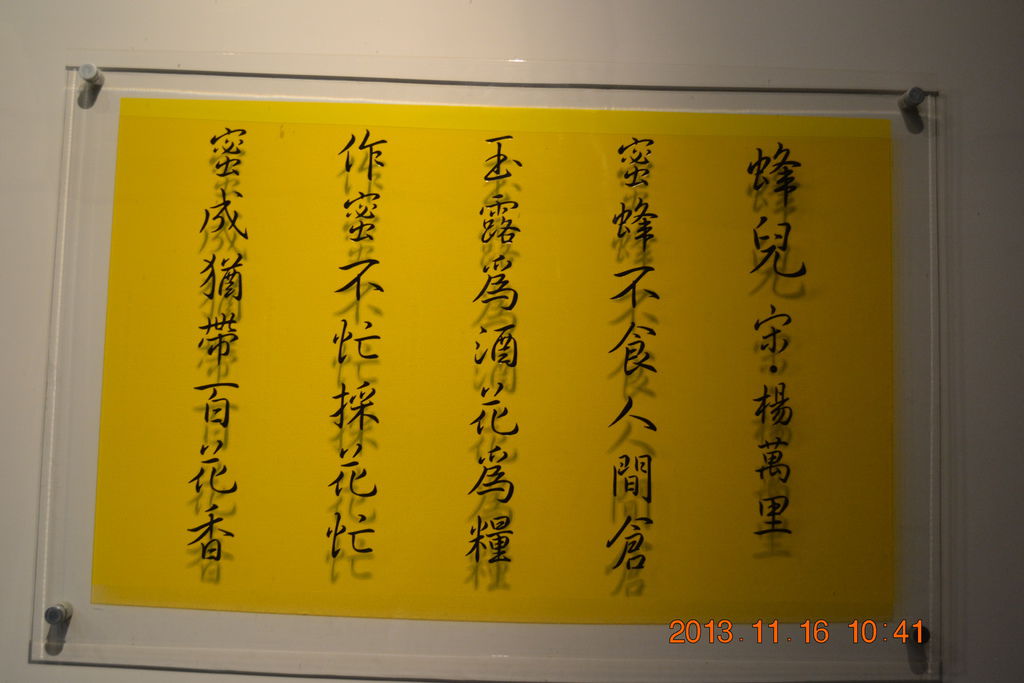 蜂兒 宋·楊萬里
蜜蜂不食人間倉
玉露為酒花為糧
作蜜不忙採花忙
蜜成猶帶百花香
2013.11.16 10:41